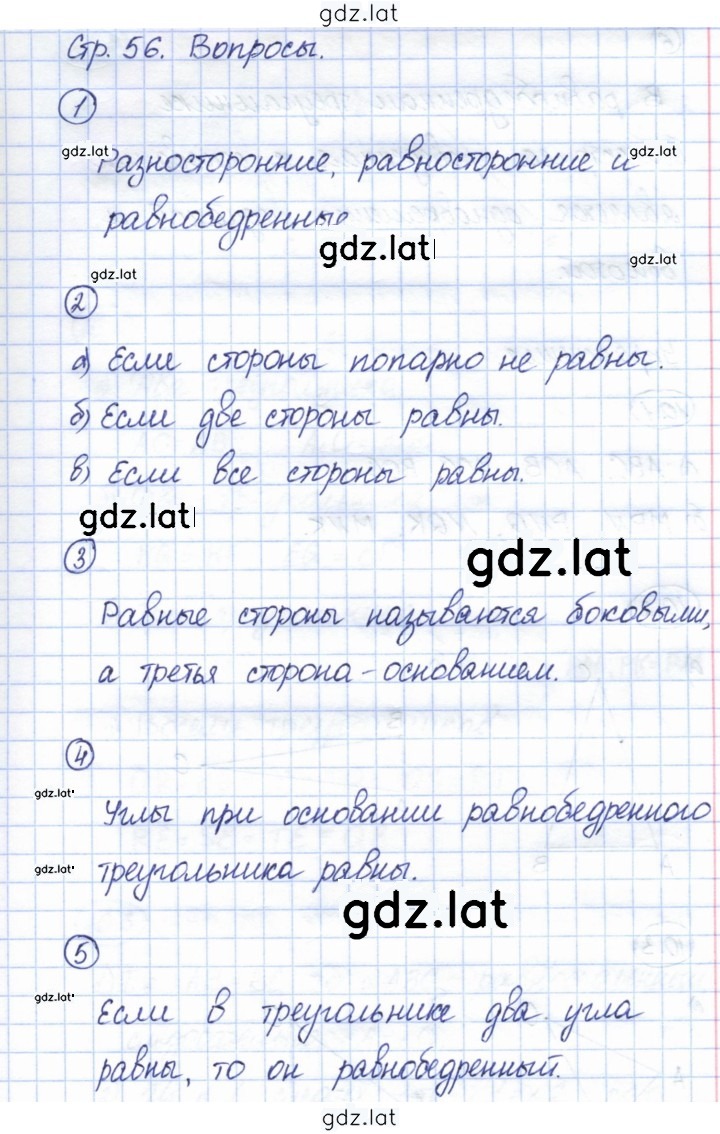 gdz.lat
Стр. 56. Вопросы.
1
gdz.lat Разносторонние, равносторонние и gdz.lat
равнобедренные
gdz.lat
gdz.lat gdz.lat
2
а) Если стороны попарно не равны.
б) Если две стороны равны.
в) Если все стороны равны.
gdz.lat
gdz.lat
3
Равные стороны называются боковыми,
а третья сторона - основанием.
4
gdz.lat
Углы при основании равнобедренного
gdz.lat треугольника равны.
gdz.lat
5
gdz.lat
Если в треугольнике два угла
равны, то он равнобедренный.
gdz.lat